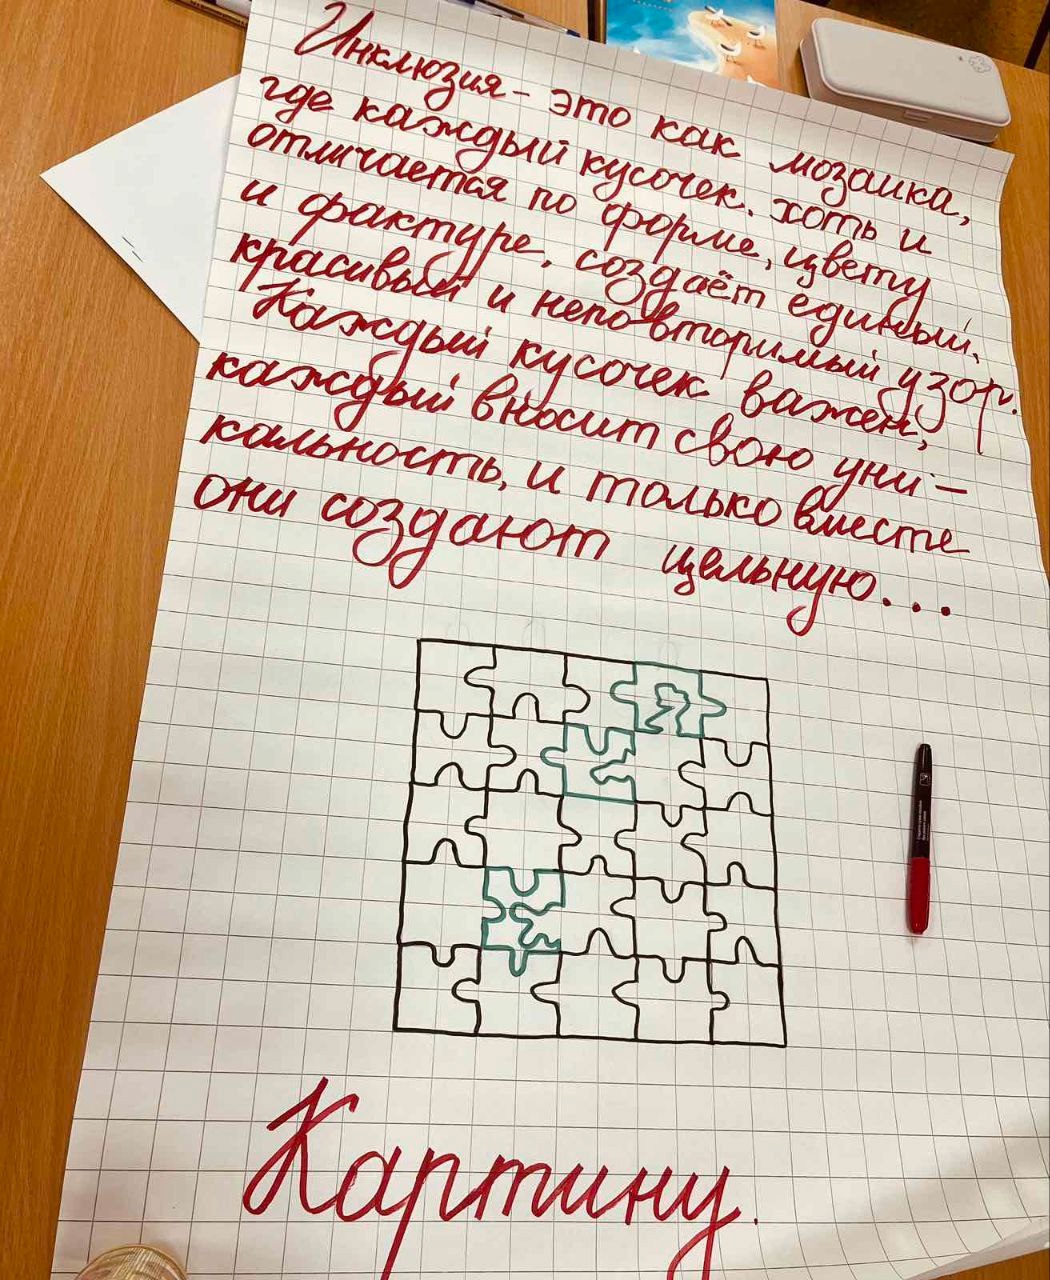 Инклюзия - это как мозаика,
где каждый кусочек, хоть и
отличается по форме, цвету
и фактуре, создаёт единый,
красивый и неповторимый узор.
Каждый кусочек важен,
каждый вносит свою уни-
кальность, и только вместе
они создают цельную...
Картину.